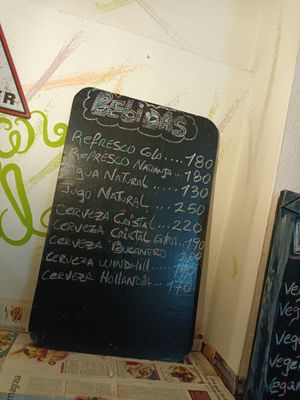 BEBIDAS
REFRESCO COLA....180
REFRESCO NARANJA..180
Agua Natural....130
Jugo Natural....250
CERVEZA CRISTAL..220
CERVEZA CRISTAL EXTRA..190
CERVEZA BUCANERO..200
CERVEZA WINDMILL..
CERVEZA HOLLANDIA...170
ER
Ve
Ve
Vega
Vege
Vegan